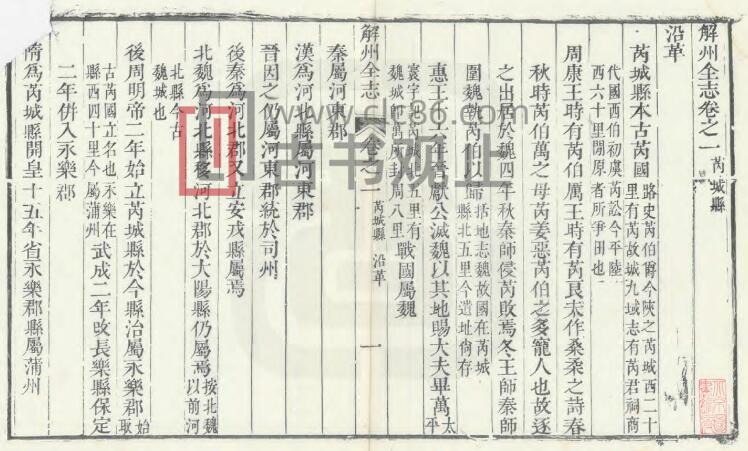 解州全志卷之一 芮城縣
沿革
芮城縣本古芮國 路史芮伯爵今陝之芮城西二十
里有芮故城九域志有芮君祠商
代國西伯初虞芮訟今平陸
西六十里閒原者所爭田也
周康王時有芮伯厲王時有芮良夫作桑柔之詩春
秋時芮伯萬之母芮姜惡芮伯之多寵人也故逐
之出居於魏四年秋秦師侵芮敗焉冬王師秦師
圍魏執芮伯以歸 括地志魏故國在芮城
縣北五里今遺址尙存
惠王十六年晉獻公滅魏以其地賜大夫畢萬 太平
寰宇記芮城北五里有
魏城卽萬所封周八里 戰國屬魏
解州全志 卷之一 芮城縣 沿革 一
秦屬河東郡
漢爲河北縣屬河東郡
晉因之仍屬河東郡統於司州
後秦爲河北郡又立安戎縣屬焉
北魏爲河北縣移河北郡於大陽縣仍屬焉 按北魏
以前河
北縣今古
魏城也
後周明帝二年始立芮城縣於今縣治屬永樂郡 始取
古芮國立名也永樂在
縣西四十里今屬蒲州 武成二年改長樂縣保定
二年併入永樂郡
隋爲芮城縣開皇十五年省永樂郡縣屬蒲州
www.clc86.com
古书网上